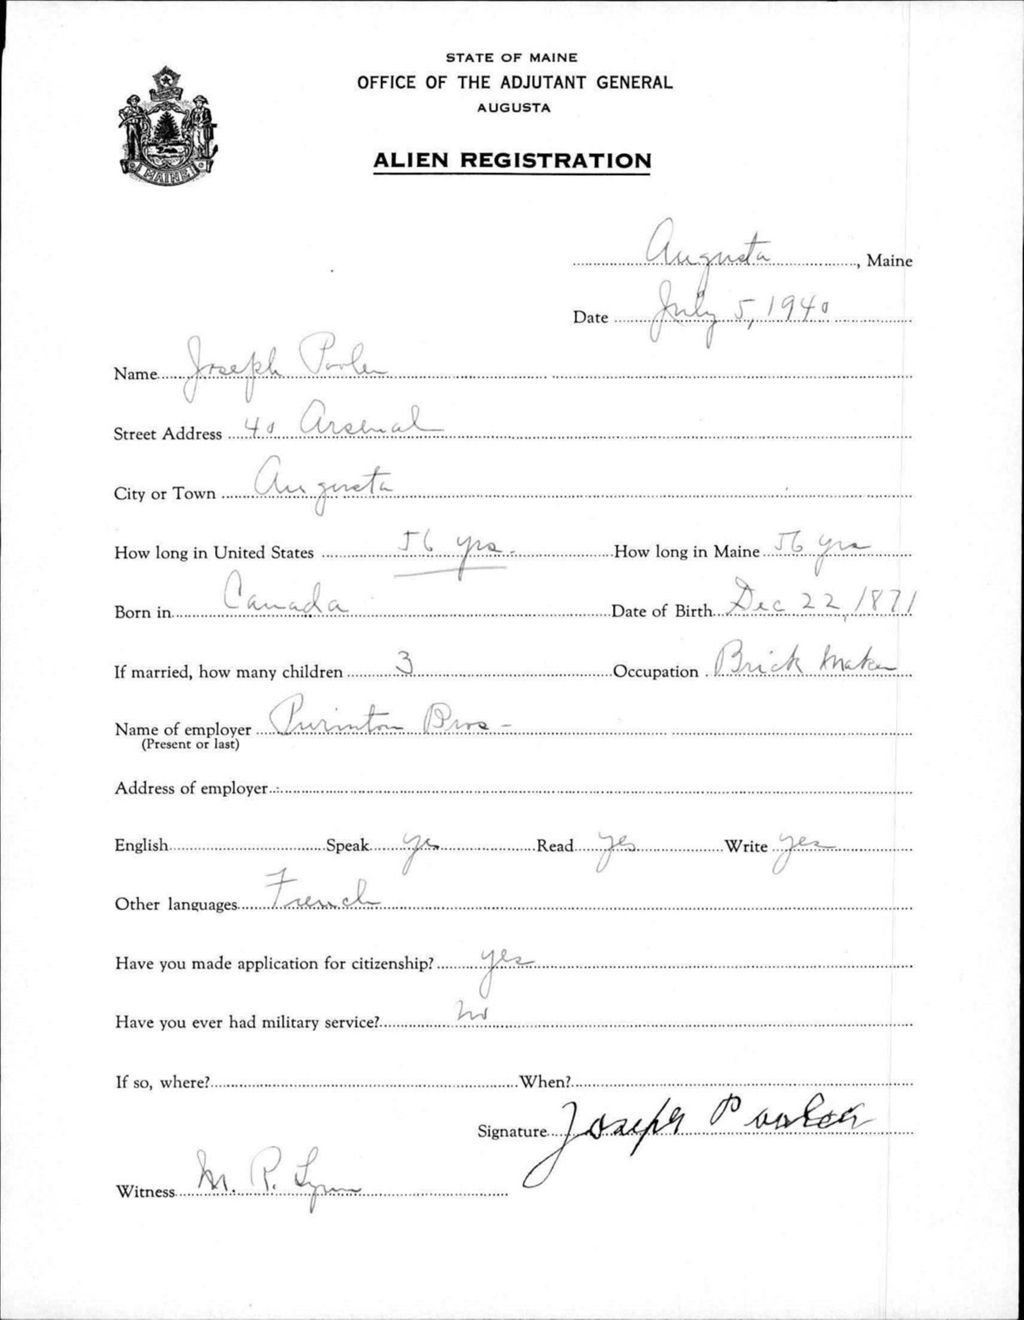 STATE OF MAINE
OFFICE OF THE ADJUTANT GENERAL
AUGUSTA
ALIEN REGISTRATION
MAINE
Augusta, Maine
Date July 5, 1940
Name Joseph Pooler
Street Address 40 Arsenal
City or Town Augusta
How long in United States 56 yrs. How long in Maine 56 yrs
Born in Canada Date of Birth Dec 22, 1871
If married, how many children 3 Occupation Brick Maker
Name of employer Purinton Bros -
(Present or last)
Address of employer
English Speak yes Read yes Write yes
Other languages French
Have you made application for citizenship? yes
Have you ever had military service? no
If so, where? When?
Signature Joseph Pooler
Witness M. R. Lynn